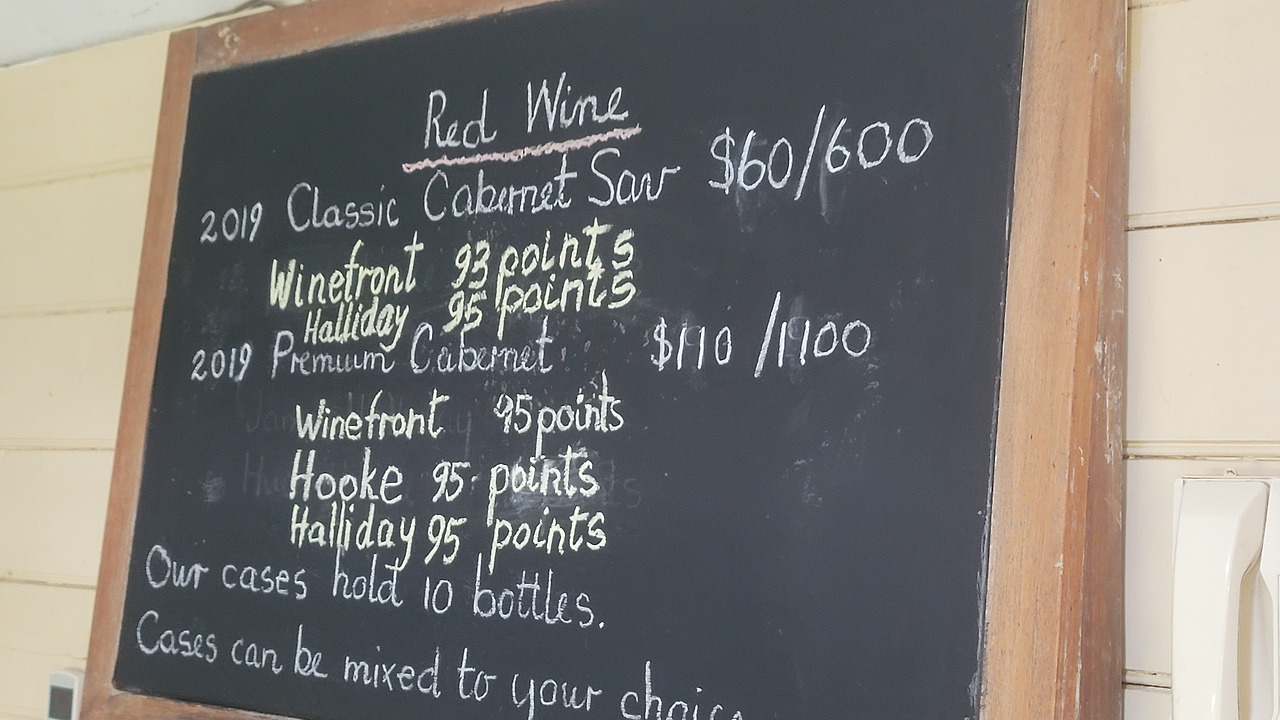 Red Wine
2019 Classic Cabernet Sav $60/600
Winefront 93 points
Halliday 95 points
2019 Premium Cabernet $110/1100
Winefront 95 points
Hooke 95 points
Halliday 95 points
Our cases hold 10 bottles.
Cases can be mixed to your